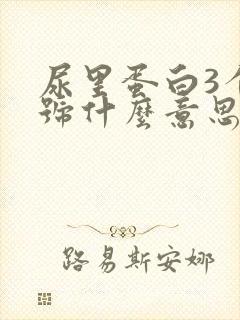 尿里蛋白3个
號什麼意思
路易斯安娜